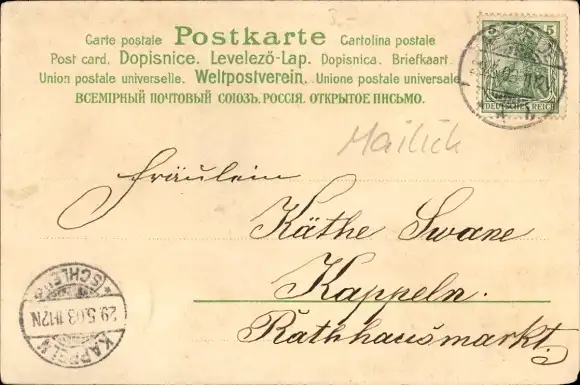 3.-
Carte postale Postkarte Cartolina postale
Post card. Dopisnice. Levelező-Lap. Dopisnica. Briefkaart
Union postale universelle. Weltpostverein. Unione postale universale
ВСЕМІРНЫЙ ПОЧТОВЫЙ СОЮЗЪ. РОССІЯ. ОТКРЫТОЕ ПИСЬМО.
5 5
DEUTSCHES REICH
Mailich
Fräulein
Käthe Swane
Kappeln.
Rathhausmarkt.
KAPPELN
29.5.03.11-12N
(SCHLEI)